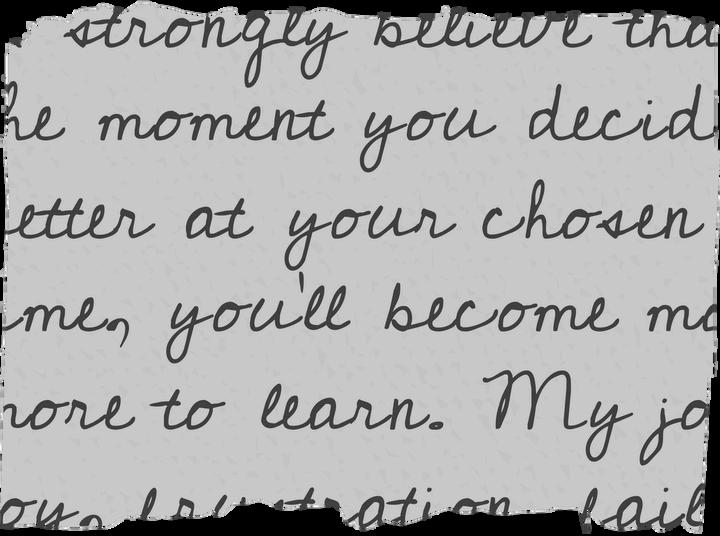 strongly believe tha
he moment you decid
etter at your chosen
me, you'll become mo
more to learn. My jo
oy, frustration, fail